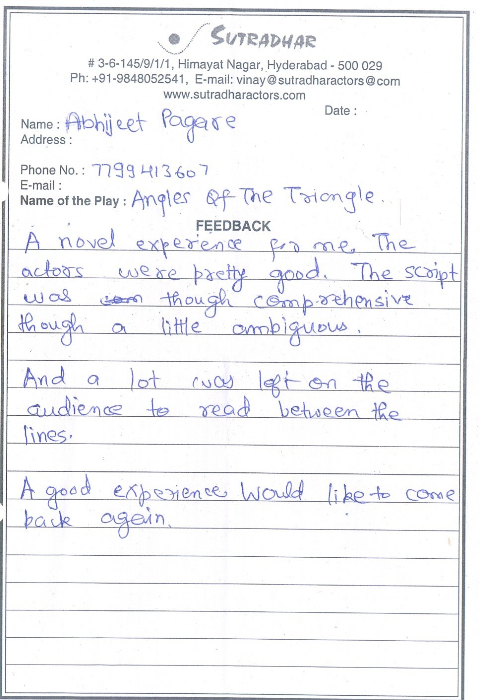 SUTRADHAR
# 3-6-145/9/1/1, Himayat Nagar, Hyderabad - 500 029
Ph: +91-9848052541, E-mail: vinay@sutradharactors@com
www.sutradharactors.com
Date :
Name : Abhijeet Pagare
Address :
Phone No. : 7799413607
E-mail :
Name of the Play : Angles Of The Triangle.
FEEDBACK
A novel experience for me. The
actors were pretty good. The script
was though comprehensive
though a little ambiguous.
And a lot was left on the
audience to read between the
lines.
A good experience would like to come
back again.